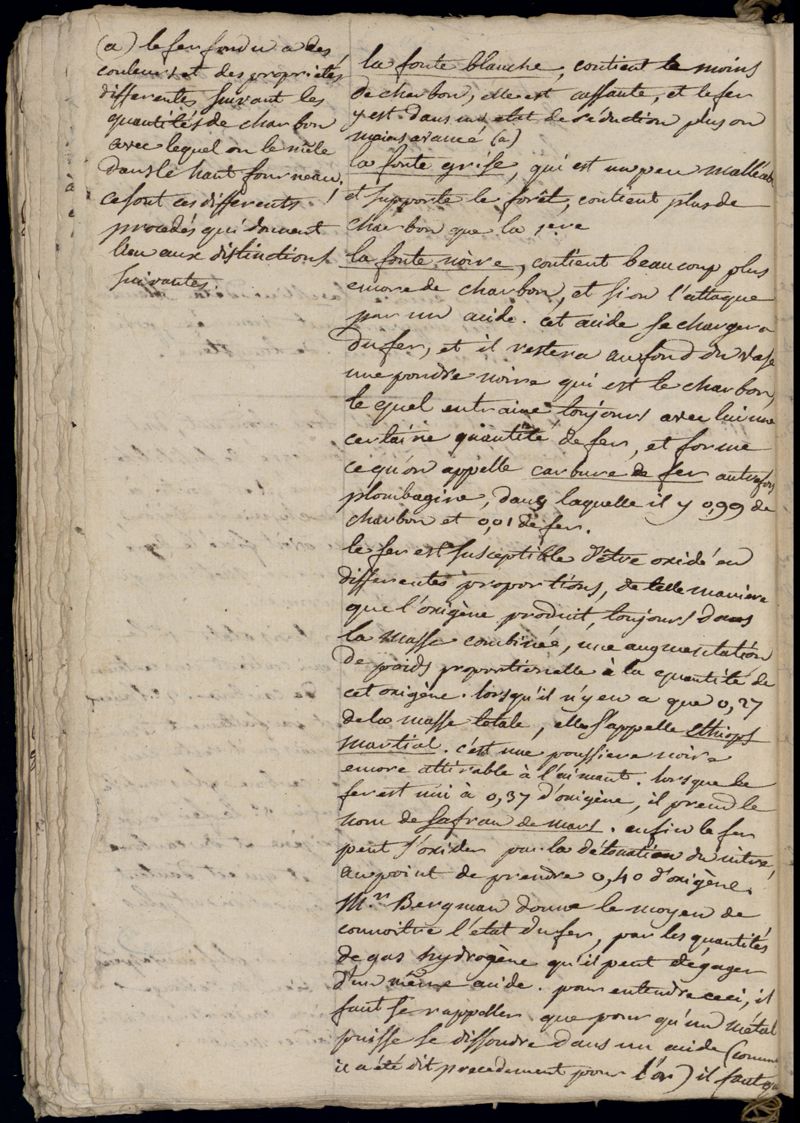 (a) le fer fondu a des
couleurs et des propriétés
differentes suivant les
quantités de charbon
avec lequel on le mêle
dans le haut fourneau;
ce sont ces differents
procedés qui donnent
lieu aux distinctions
suivantes.
la fonte blanche, contient le moins
de charbon, elle est cassante, et le fer
y est dans un etat de réduction plus ou
moins avancé (a)
la fonte grise, qui est un peu malléable
et supporte le forêt, contient plus de
charbon que la 1ere
la fonte noire, contient beaucoup plus
encore de charbon, et si on l'attaque
par un acide. cet acide se chargera
du fer, et il restera au fond du vase
une poudre noire qui est le charbon,
le quel entraine toujours avec lui une
certaine quantité de fer, et forme
ce qu'on appelle carbure de fer autrefois
plombagine, dans laquelle il y 0,99 de
charbon et 0,01 de fer.
le fer est susceptible d'être oxidé en
differentes proportions, de telle maniere
que l'oxigène produit, toujours dans
la masse combinée, une augmentation
de poids proportionelle à la quantité de
cet oxigène. lorsqu'il n'y en a que 0,27
de la masse totale, elle s'appelle ethiops
martial. c'est une poussiere noire
encore attirable à l'aimant. lorsque le
fer est uni à 0,37 d'oxigène, il prend le
nom de safran de mars. enfin le fer
peut s'oxider par la détonation du nitre,
au point de prendre 0,40 d'oxigène.
Mr. Bergman donne le moyen de
connoitre l'état du fer, par les quantités
de gas hydrogène qu'il peut dégager
d'un même acide. pour entendre ceci, il
faut se rappeller que pour qu'un métal
puisse se dissoudre dans un acide (comme
il a été dit precedement pour l'or) il faut qu